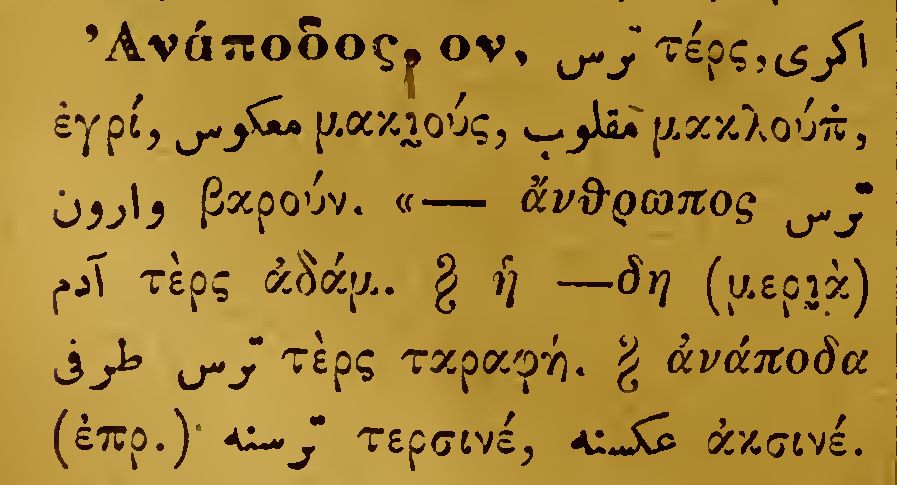 Ἀνάποδος, ον, ترس τέρς, اكری
ἐγρί, معكوس μακι̯ούς, مقلوب μακλούπ̇,
وارون βαρούν. «— ἄνθρωπος ترس
آدم τὲρς ἀδάμ. ⸹ ἡ —δη (μερι̯ὰ)
ترس طرفی τὲρς ταραφή. ⸹ ἀνάποδα
(ἐπρ.) ترسنه τερσινέ, عكسنه ἀκσινέ.